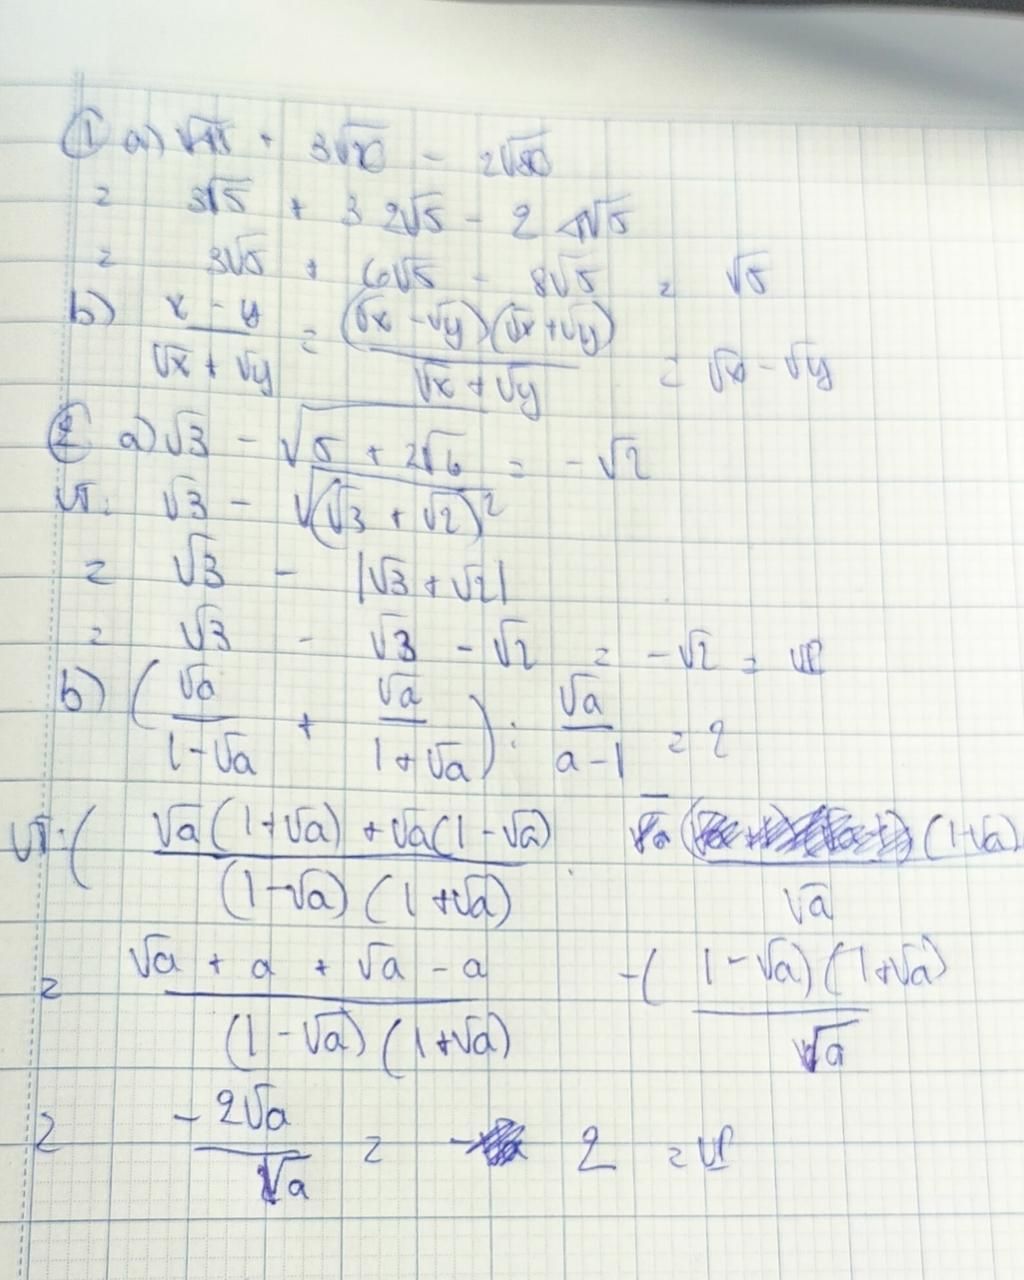 ① a) √45 + 3√20 - 2√80
= 3√5 + 3 2√5 - 2 4√5
= 3√5 + 6√5 - 8√5 = √5
b) (x - y)/(√x + √y) = ((√x - √y)(√x + √y))/(√x + √y) = √x - √y
② a) √3 - √(5 + 2√6) = -√2
VT: √3 - √((√3 + √2)²)
= √3 - |√3 + √2|
= √3 - √3 - √2 = -√2 = VP
b) (√a/(1-√a) + √a/(1+√a)) : √a/(a-1) = 2
VT: ( (√a(1+√a) + √a(1-√a))/((1-√a)(1+√a)) . (1-√a)/√a
= (√a + a + √a - a)/((1-√a)(1+√a)) -( (1-√a)(1+√a)/√a
= -2√a/√a = - 2 = VP